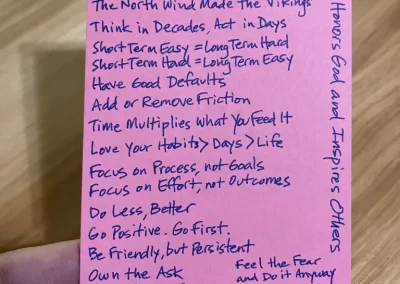 The North Wind Made the Vikings
Think in Decades, Act in Days
Short Term Easy = Long Term Hard
Short Term Hard = Long Term Easy
Have Good Defaults
Add or Remove Friction
Time Multiplies What You Feed It
Love Your Habits > Days > Life
Focus on Process, not Goals
Focus on Effort, not Outcomes
Do Less, Better
Go Positive. Go First.
Be Friendly, but Persistent
Own the Ask
Feel the Fear
and Do it Anyway
Honors God and Inspires Others